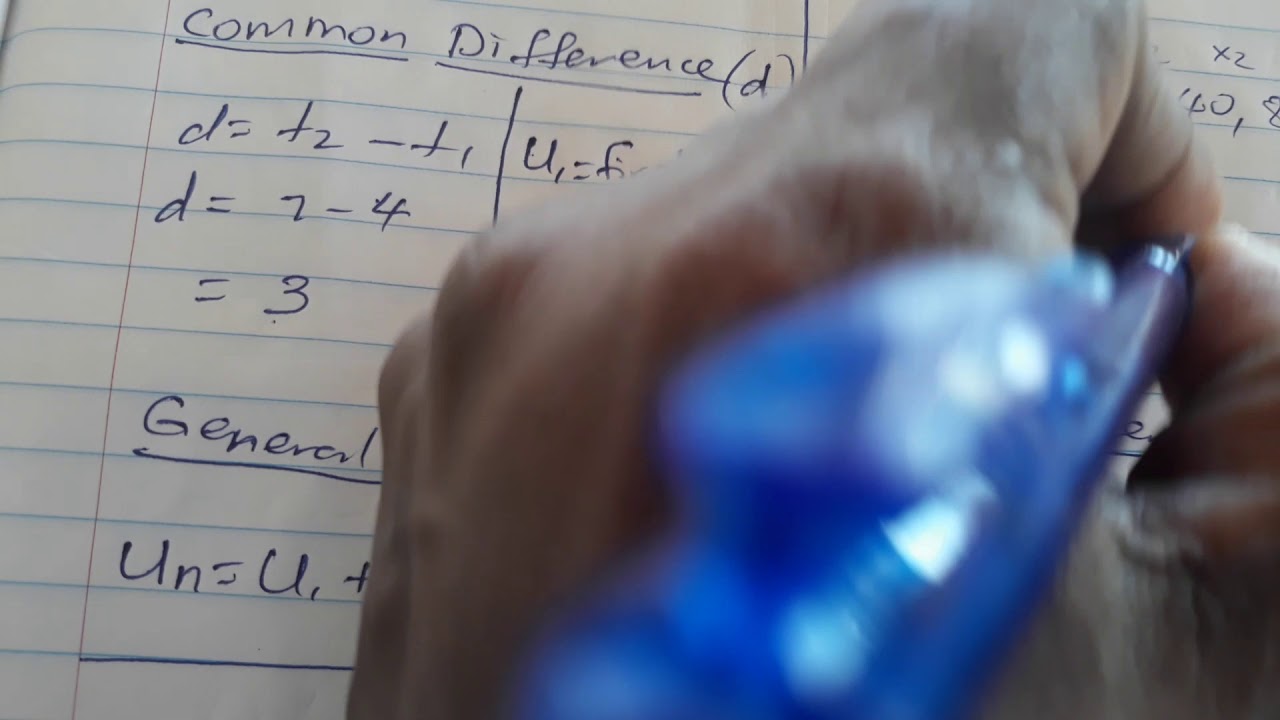 Common Difference (d)
d = t₂ - t₁
d = 7 - 4
= 3
U₁ =
General
Un = U₁ +
x2
40, 8